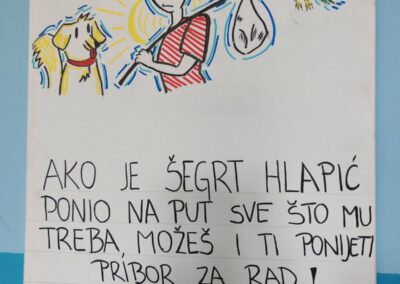 AKO JE ŠEGRT HLAPIĆ
PONIO NA PUT SVE ŠTO MU
TREBA, MOŽEŠ I TI PONIJETI
PRIBOR ZA RAD!